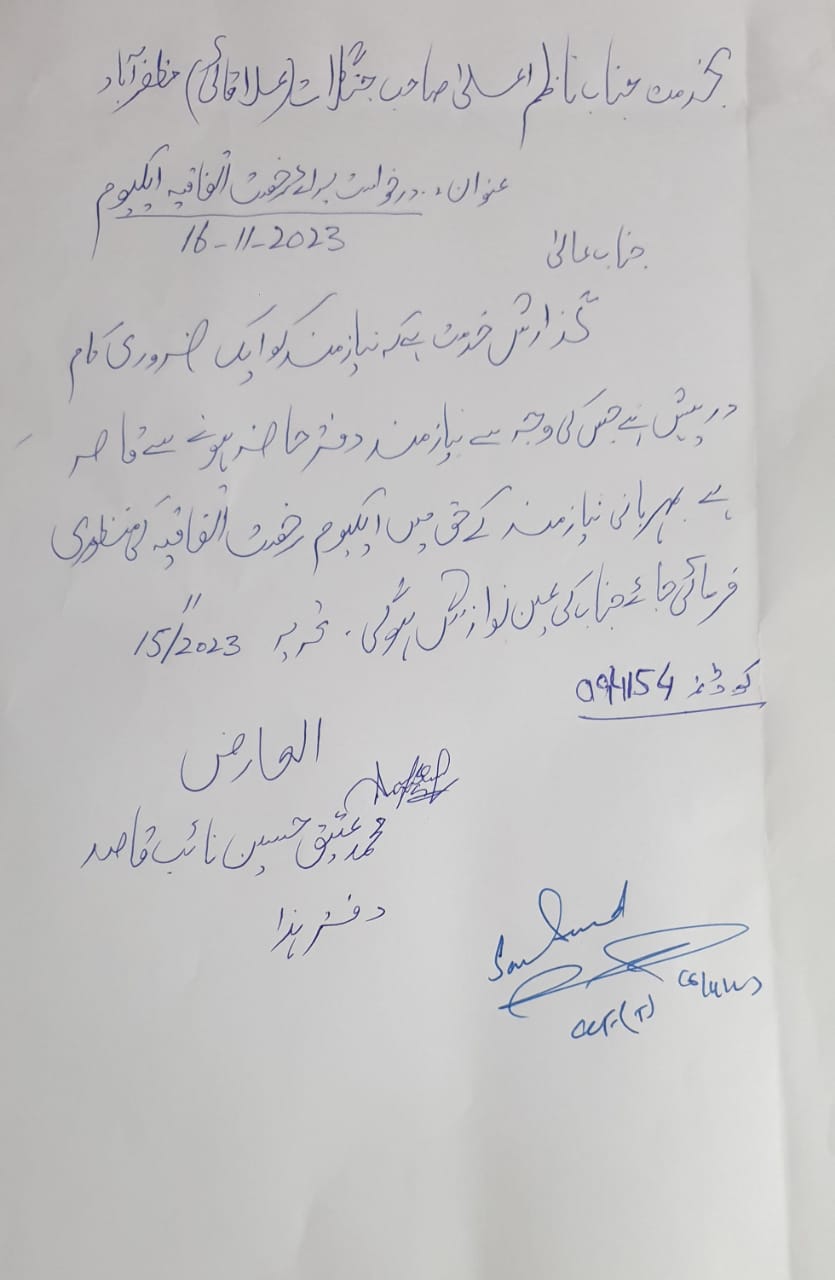 بخدمت جناب ناظم اعلیٰ صاحب جنگلات (علاقائی) مظفرآباد
عنوان:۔ درخواست برائے رخصت اتفاقیہ ایکیوم
16-11-2023
جناب عالیٰ
گذارش خدمت ہے کہ نیازمند کو ایک ضروری کام
درپیش ہے جس کی وجہ سے نیازمند دفتر حاضر ہونے سے قاصر
ہے۔ مہربانی نیازمند کے حق میں ایکیوم رخصت اتفاقیہ کی منظوری
فرمائی جائے جناب کی عین نوازش ہوگی۔ تحریر 15/11/2023
کوڈ نمبر 094154
العارض
محمد عتیق حسین نائب قاصد
دفتر ہذا
Sanctioned
CCF(T)